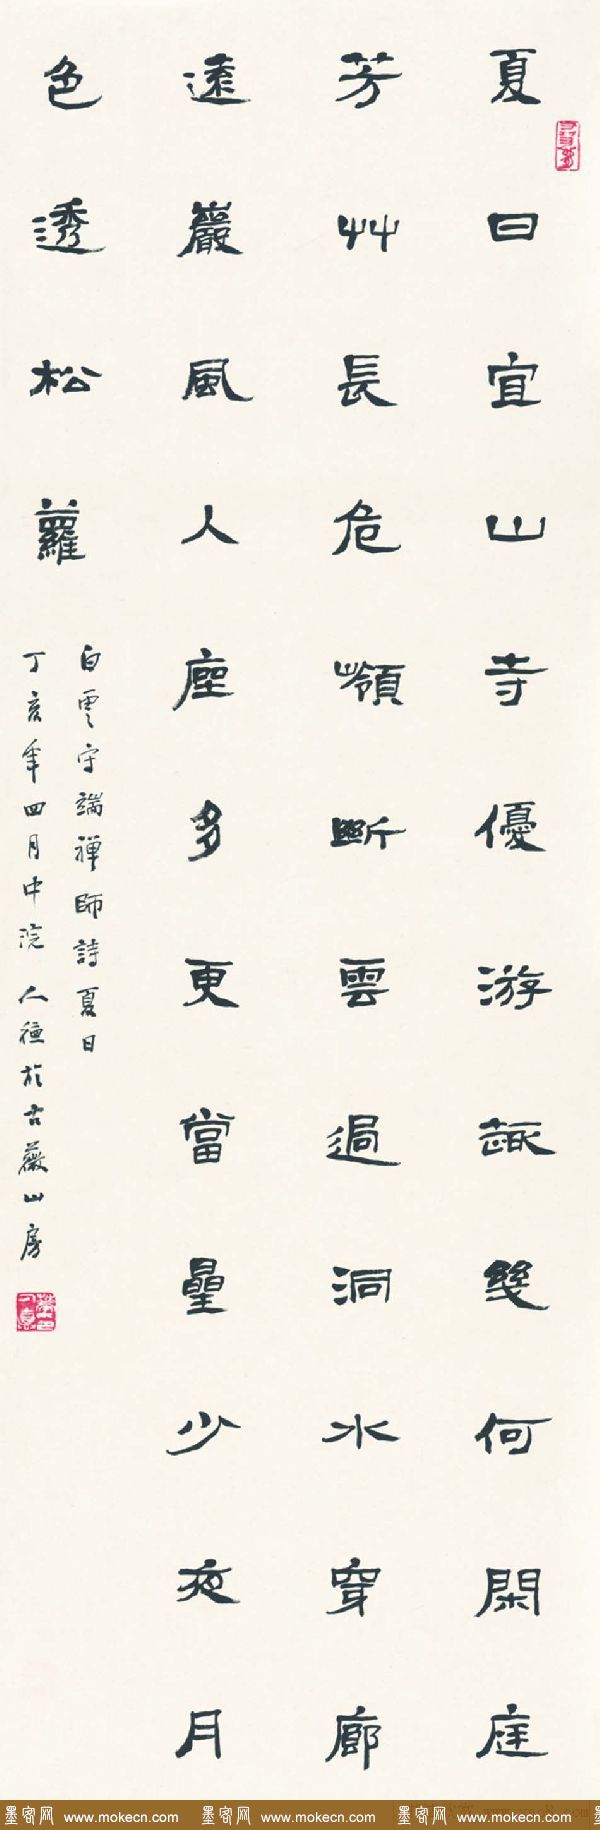 夏日宜山寺優游趣幾何閑庭
芳艸長危嶺斷雲過洞水穿廊
遠巖風人座多更當星少夜月
色透松蘿
白雲守端禪師詩夏日
丁亥年四月中浣 人種於古薇山房
墨客网 www.mokecn.com 墨客网 www.mokecn.com 墨客网 www.mokecn.com 墨客网